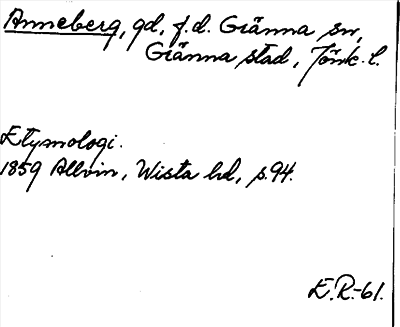 Anneberg, gd, f.d. Gränna sn,
Gränna stad, Jönk. l.
Etymologi.
1859 Allvin, Wista hd, s. 94.
E.R.-61.